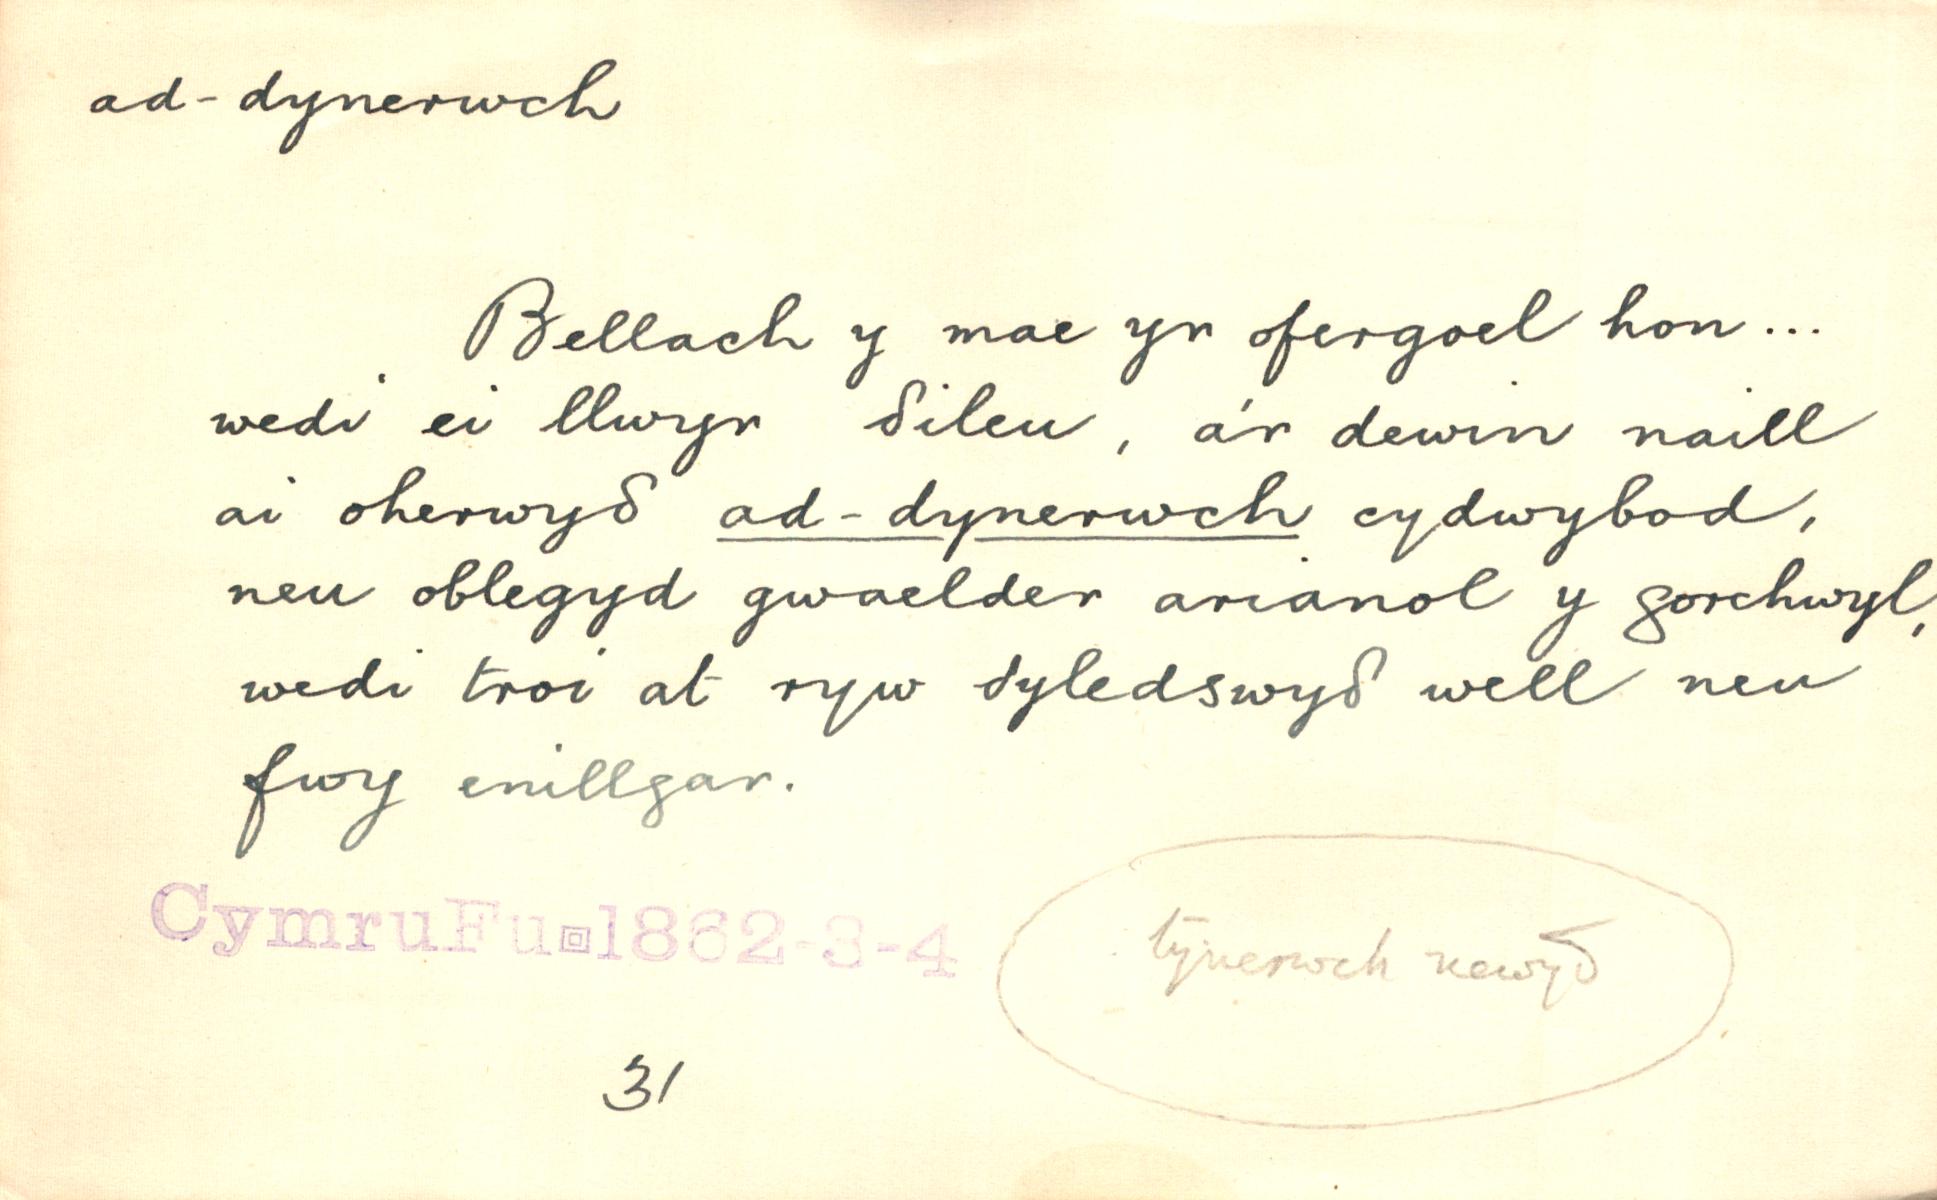 ad-dynerwch
Bellach y mae yr ofergoel hon...
wedi ei llwyr δileu, a'r dewin naill
ai oherwyδ ad-dynerwch cydwybod,
neu oblegyd gwaelder arianol y gorchwyl,
wedi troi at ryw δyledswyδ well neu
fwy enillgar.
Cymru Fu 1862-3-4
tynerwch newyδ
31